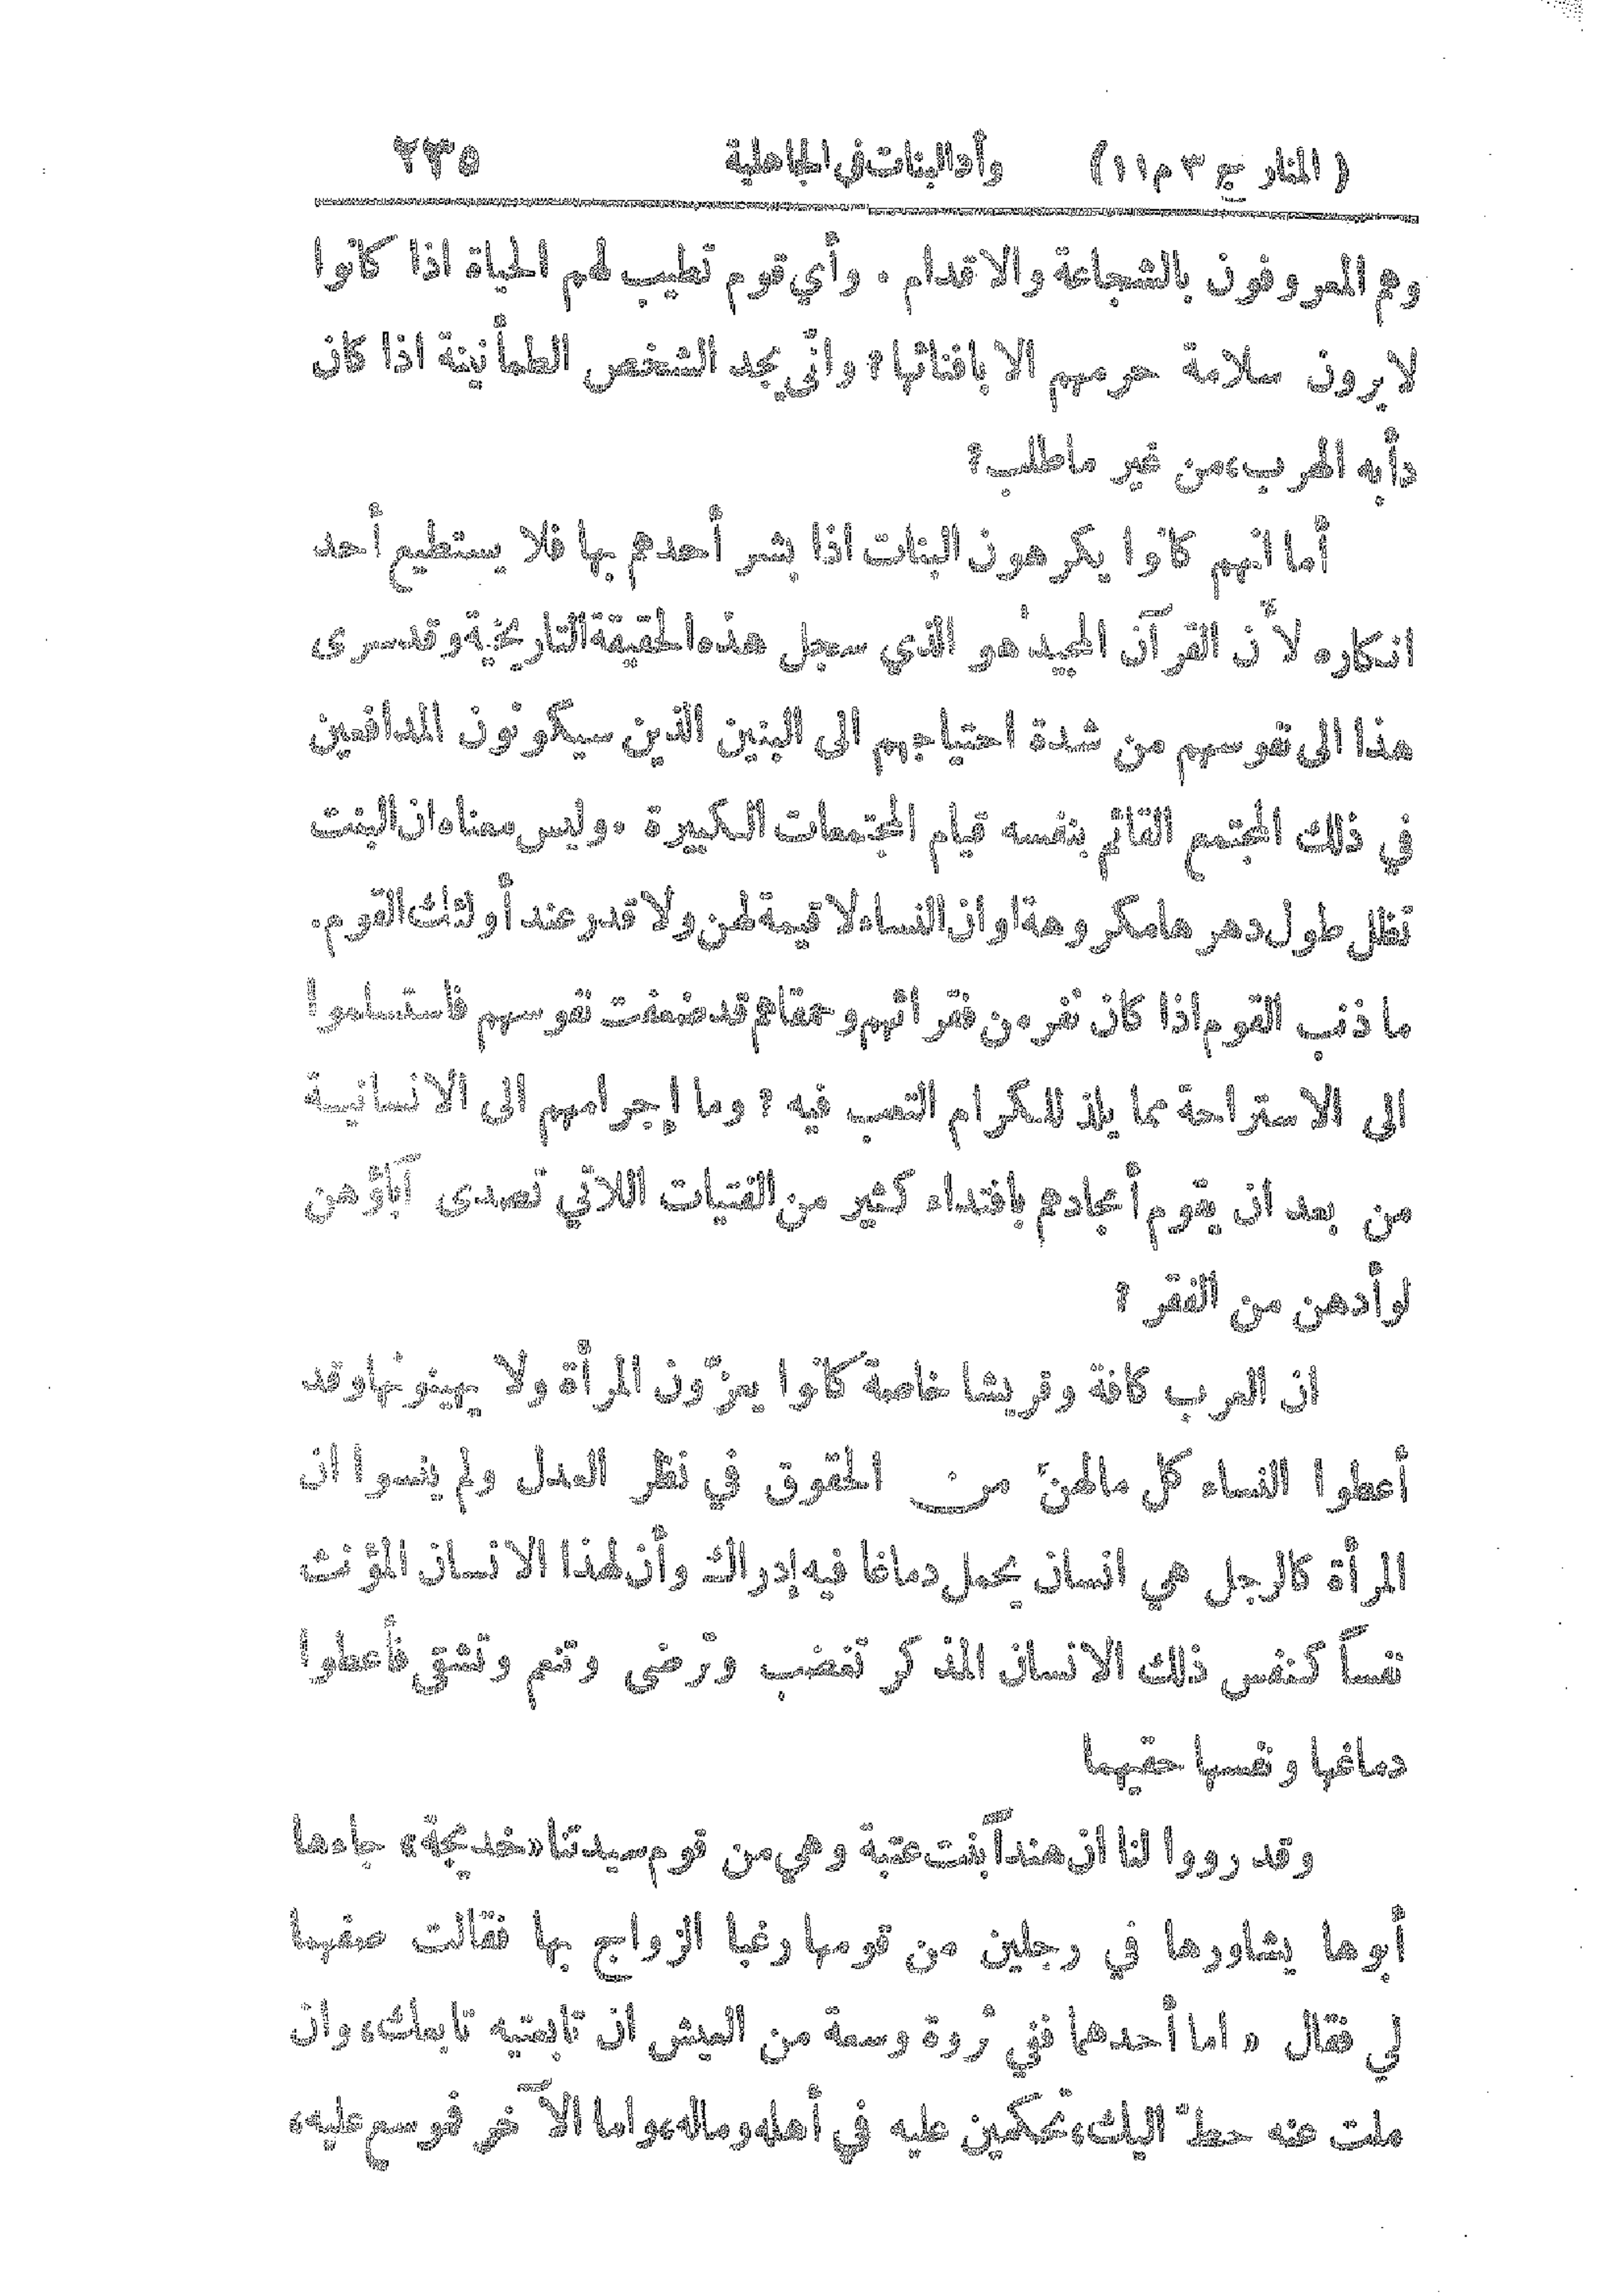 ( المنار ج ٣ م ١١ ) وأد البنات في الجاهلية ٢٣٥
وهم المعروفون بالشجاعة والاقدام . وأي قوم تطيب لهم الحياة اذا كانوا
لا يرون سلامة حرمهم الا بافنائها؟ وانّى يجد الشخص الطمأنينة اذا كان
دأبه الهرب،من غير ماطلب؟
أما انهم كانوا يكرهون البنات اذا بشر أحدهم بها فلا يستطيع أحد
انكاره لأن القرآن المجيد هو الذي سجل هذه الحقيقة التاريخية وقد سرى
هذا الى نفوسهم من شدة احتياجهم الى البنين الذين سيكونون المدافعين
في ذلك المجتمع القائم بنفسه قيام المجتمعات الكبيرة . وليس معناه ان البنت
تظل طول دهرها مكروهة او ان النساء لا قيمة لهن ولا قدر عند أولئك القوم.
ما ذنب القوم اذا كان نفر من فقرائهم وحمقاهم قد ضعفت نفوسهم فاستسلموا
الى الاستراحة مما يلذ للكرام التعب فيه ؟ وما إجرامهم الى الانسانية
من بعد ان يقوم أمجادهم بافتداء كثير من الفتيات اللاتي تصدى آباؤهن
لوأدهن من الفقر ؟
ان العرب كافة وقريشا خاصة كانوا يعزّون المرأة ولا يهينونها وقد
أعطوا النساء كل مالهنّ من الحقوق في نظر العدل ولم ينسوا ان
المرأة كالرجل هي انسان يحمل دماغا فيه إدراك وأن لهذا الانسان المؤنث
نفساً كنفس ذلك الانسان المذكر تغضب وترضى وتنعم وتشقى فأعطوا
دماغها ونفسها حقيهما
وقد رووا لنا ان هنداً بنت عتبة وهي من قوم سيدتنا «خديجة» جاءها
أبوها يشاورها في رجلين من قومها رغبا الزواج بها فقالت صفهما
لي فقال « اما أحدهما ففي ثروة وسعة من العيش ان تابعتيه تابعك، وان
ملت عنه حطّ اليك،تحكمين عليه في أهله وماله،واما الآخر فموسع عليه،